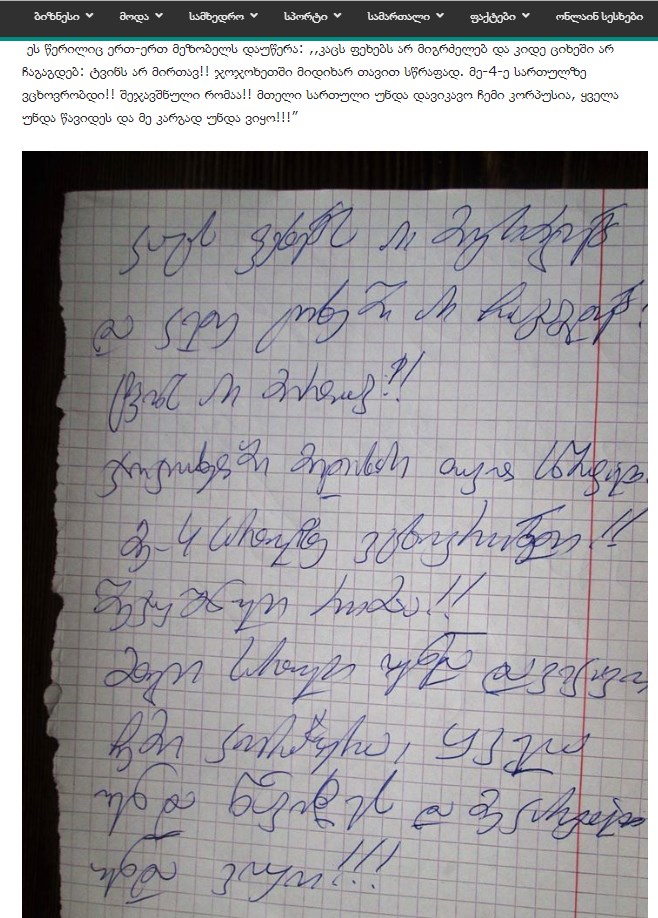 ბიზნესი მოდა სამხედრო სპორტი სამართალი ფაქტები ონლაინ სესხები
ეს წერილიც ერთ-ერთ მეზობელს დაუწერა: ,,კაცს ფეხებს არ მიგრძელებ და კიდე ციხეში არ
ჩაგაგდებ: ტვინს არ მირთავ!! ჯოჯოხეთში მიდიხარ თავით სწრაფად. მე-4-ე სართულზე
ვცხოვრობდი!! შეჯავშნული რომაა!! მთელი სართული უნდა დავიკავო ჩემი კორპუსია, ყველა
უნდა წავიდეს და მე კარგად უნდა ვიყო!!!”
კაცს ფეხებს არ
და კიდე ციხეში არ
ტვინს არ მირთავ!!
ჯოჯოხეთში მიდიხარ თავით სწრაფად.
მე-4 სართულზე ვცხოვრობდი!!
შეჯავშნული რომაა!!
მთელი სართული უნდა დავიკავო
ჩემი კორპუსია, ყველა
უნდა წავიდეს და მე კარგად
უნდა ვიყო!!!